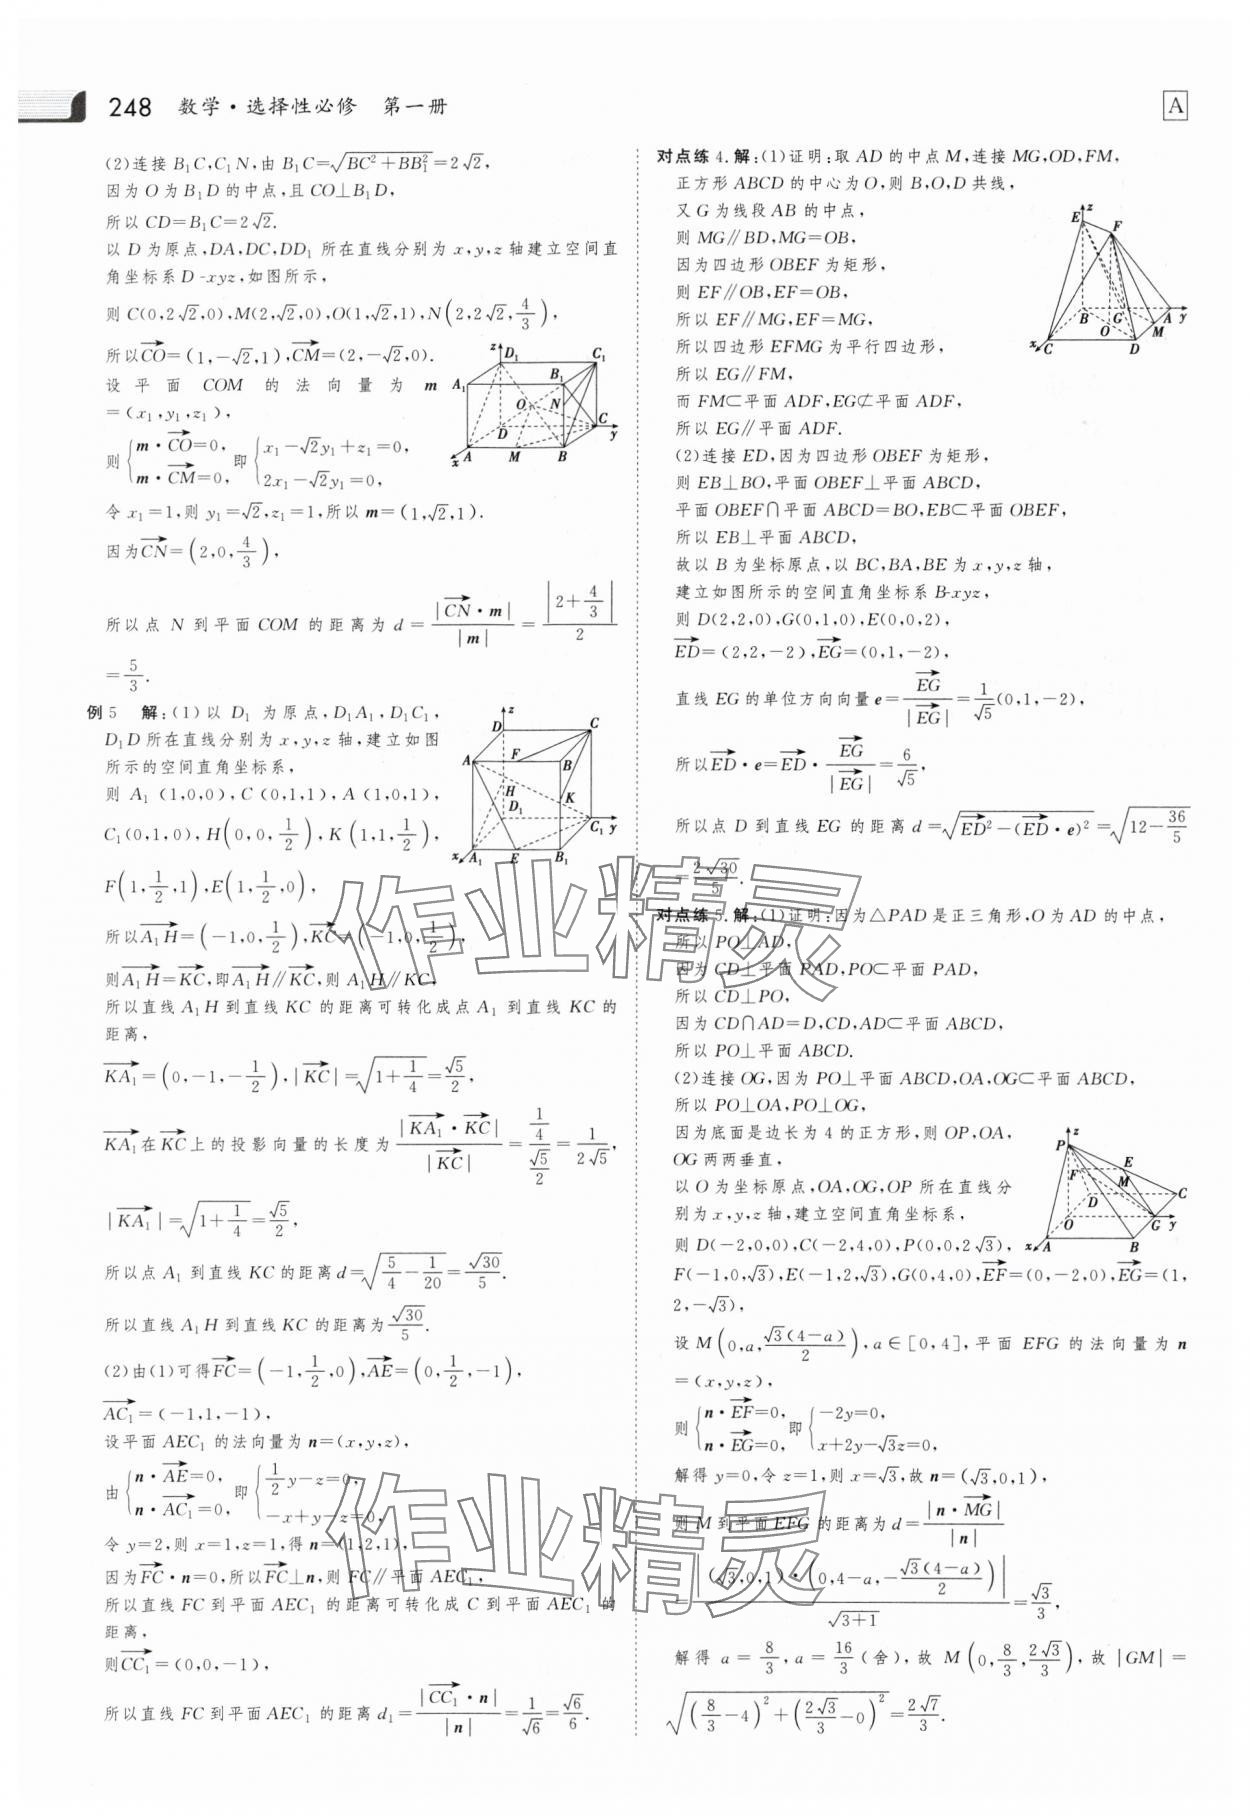 248 数学·选择性必修 第一册
A
(2)连接 B₁C,C₁N,由 B₁C=√(BC²+BB₁²)=2√2,
因为 O 为 B₁D 的中点,且 CO⊥B₁D,
所以 CD=B₁C=2√2.
以 D 为原点,DA,DC,DD₁ 所在直线分别为 x,y,z 轴建立空间直
角坐标系 D-xyz,如图所示,
则 C(0,2√2,0),M(2,√2,0),O(1,√2,1),N(2,2√2,4/3),
所以CO→=(1,-√2,1),CM→=(2,-√2,0).
设平面 COM 的法向量为 m
=(x₁,y₁,z₁),
则{m·CO→=0, m·CM→=0, 即{x₁-√2y₁+z₁=0, 2x₁-√2y₁=0,
令 x₁=1,则 y₁=√2,z₁=1,所以 m=(1,√2,1).
因为CN→=(2,0,4/3),
所以点 N 到平面 COM 的距离为 d=|CN→·m|/|m|=|2+4/3|/2
=5/3.
例 5 解:(1)以 D₁ 为原点,D₁A₁,D₁C₁,
D₁D 所在直线分别为 x,y,z 轴,建立如图
所示的空间直角坐标系,
则 A₁(1,0,0),C(0,1,1),A(1,0,1),
C₁(0,1,0),H(0,0,1/2),K(1,1,1/2),
F(1,1/2,1),E(1,1/2,0),
所以A₁H→=(-1,0,1/2),KC→=(-1,0,1/2),
则A₁H→=KC→,即A₁H→∥KC→,则 A₁H∥KC,
所以直线 A₁H 到直线 KC 的距离可转化成点 A₁ 到直线 KC 的
距离,
KA₁→=(0,-1,-1/2),|KC→|=√(1+1/4)=√5/2,
KA₁→在KC→上的投影向量的长度为|KA₁→·KC→|/|KC→|=(1/4)/(√5/2)=1/(2√5),
|KA₁→|=√(1+1/4)=√5/2,
所以点 A₁ 到直线 KC 的距离d=√(5/4-1/20)=√30/5.
所以直线 A₁H 到直线 KC 的距离为√30/5.
(2)由(1)可得FC→=(-1,1/2,0),AE→=(0,1/2,-1),
AC₁→=(-1,1,-1),
设平面 AEC₁ 的法向量为 n=(x,y,z),
由{n·AE→=0, n·AC₁→=0, 即{1/2y-z=0, -x+y-z=0,
令 y=2,则 x=1,z=1,得 n=(1,2,1),
因为FC→·n=0,所以FC→⊥n,则 FC∥平面 AEC₁,
所以直线 FC 到平面 AEC₁ 的距离可转化成 C 到平面 AEC₁ 的
距离,
则CC₁→=(0,0,-1),
所以直线 FC 到平面 AEC₁ 的距离 d₁=|CC₁→·n|/|n|=1/√6=√6/6.
对点练 4.解:(1)证明:取 AD 的中点 M,连接 MG,OD,FM,
正方形 ABCD 的中心为 O,则 B,O,D 共线,
又 G 为线段 AB 的中点,
则 MG∥BD,MG=OB,
因为四边形 OBEF 为矩形,
则 EF∥OB,EF=OB,
所以 EF∥MG,EF=MG,
所以四边形 EFMG 为平行四边形,
所以 EG∥FM,
而 FM⊂平面 ADF,EG⊄平面 ADF,
所以 EG∥平面 ADF.
(2)连接 ED,因为四边形 OBEF 为矩形,
则 EB⊥BO,平面 OBEF⊥平面 ABCD,
平面 OBEF∩平面 ABCD=BO,EB⊂平面 OBEF,
所以 EB⊥平面 ABCD,
故以 B 为坐标原点,以 BC,BA,BE 为 x,y,z 轴,
建立如图所示的空间直角坐标系 B-xyz,
则 D(2,2,0),G(0,1,0),E(0,0,2),
ED→=(2,2,-2),EG→=(0,1,-2),
直线 EG 的单位方向向量 e=EG→/|EG→|=1/√5(0,1,-2),
所以ED→·e=ED→·EG→/|EG→|=6/√5,
所以点 D 到直线 EG 的距离 d=√(ED→²-(ED→·e)²)=√(12-36/5)
=2√30/5.
对点练 5.解:(1)证明:因为△PAD 是正三角形,O 为 AD 的中点,
所以 PO⊥AD,
因为 CD⊥平面 PAD,PO⊂平面 PAD,
所以 CD⊥PO,
因为 CD∩AD=D,CD,AD⊂平面 ABCD,
所以 PO⊥平面 ABCD.
(2)连接 OG,因为 PO⊥平面 ABCD,OA,OG⊂平面 ABCD,
所以 PO⊥OA,PO⊥OG,
因为底面是边长为 4 的正方形,则 OP,OA,
OG 两两垂直,
以 O 为坐标原点,OA,OG,OP 所在直线分
别为 x,y,z 轴,建立空间直角坐标系,
则 D(-2,0,0),C(-2,4,0),P(0,0,2√3),
F(-1,0,√3),E(-1,2,√3),G(0,4,0),EF→=(0,-2,0),EG→=(1,
2,-√3),
设 M(0,a,√3(4-a)/2),a∈[0,4],平面 EFG 的法向量为 n
=(x,y,z),
则{n·EF→=0, n·EG→=0, 即{-2y=0, x+2y-√3z=0,
解得 y=0,令 z=1,则 x=√3,故 n=(√3,0,1),
则 M 到平面 EFG 的距离为 d=|n·MG→|/|n|
=|(√3,0,1)·(0,4-a,-√3(4-a)/2)|/√(3+1)=√3/3,
解得 a=8/3,a=16/3(舍),故 M(0,8/3,2√3/3),故 |GM|=
√((8/3-4)²+(2√3/3-0)²)=2√7/3.
作业精灵
作业精灵